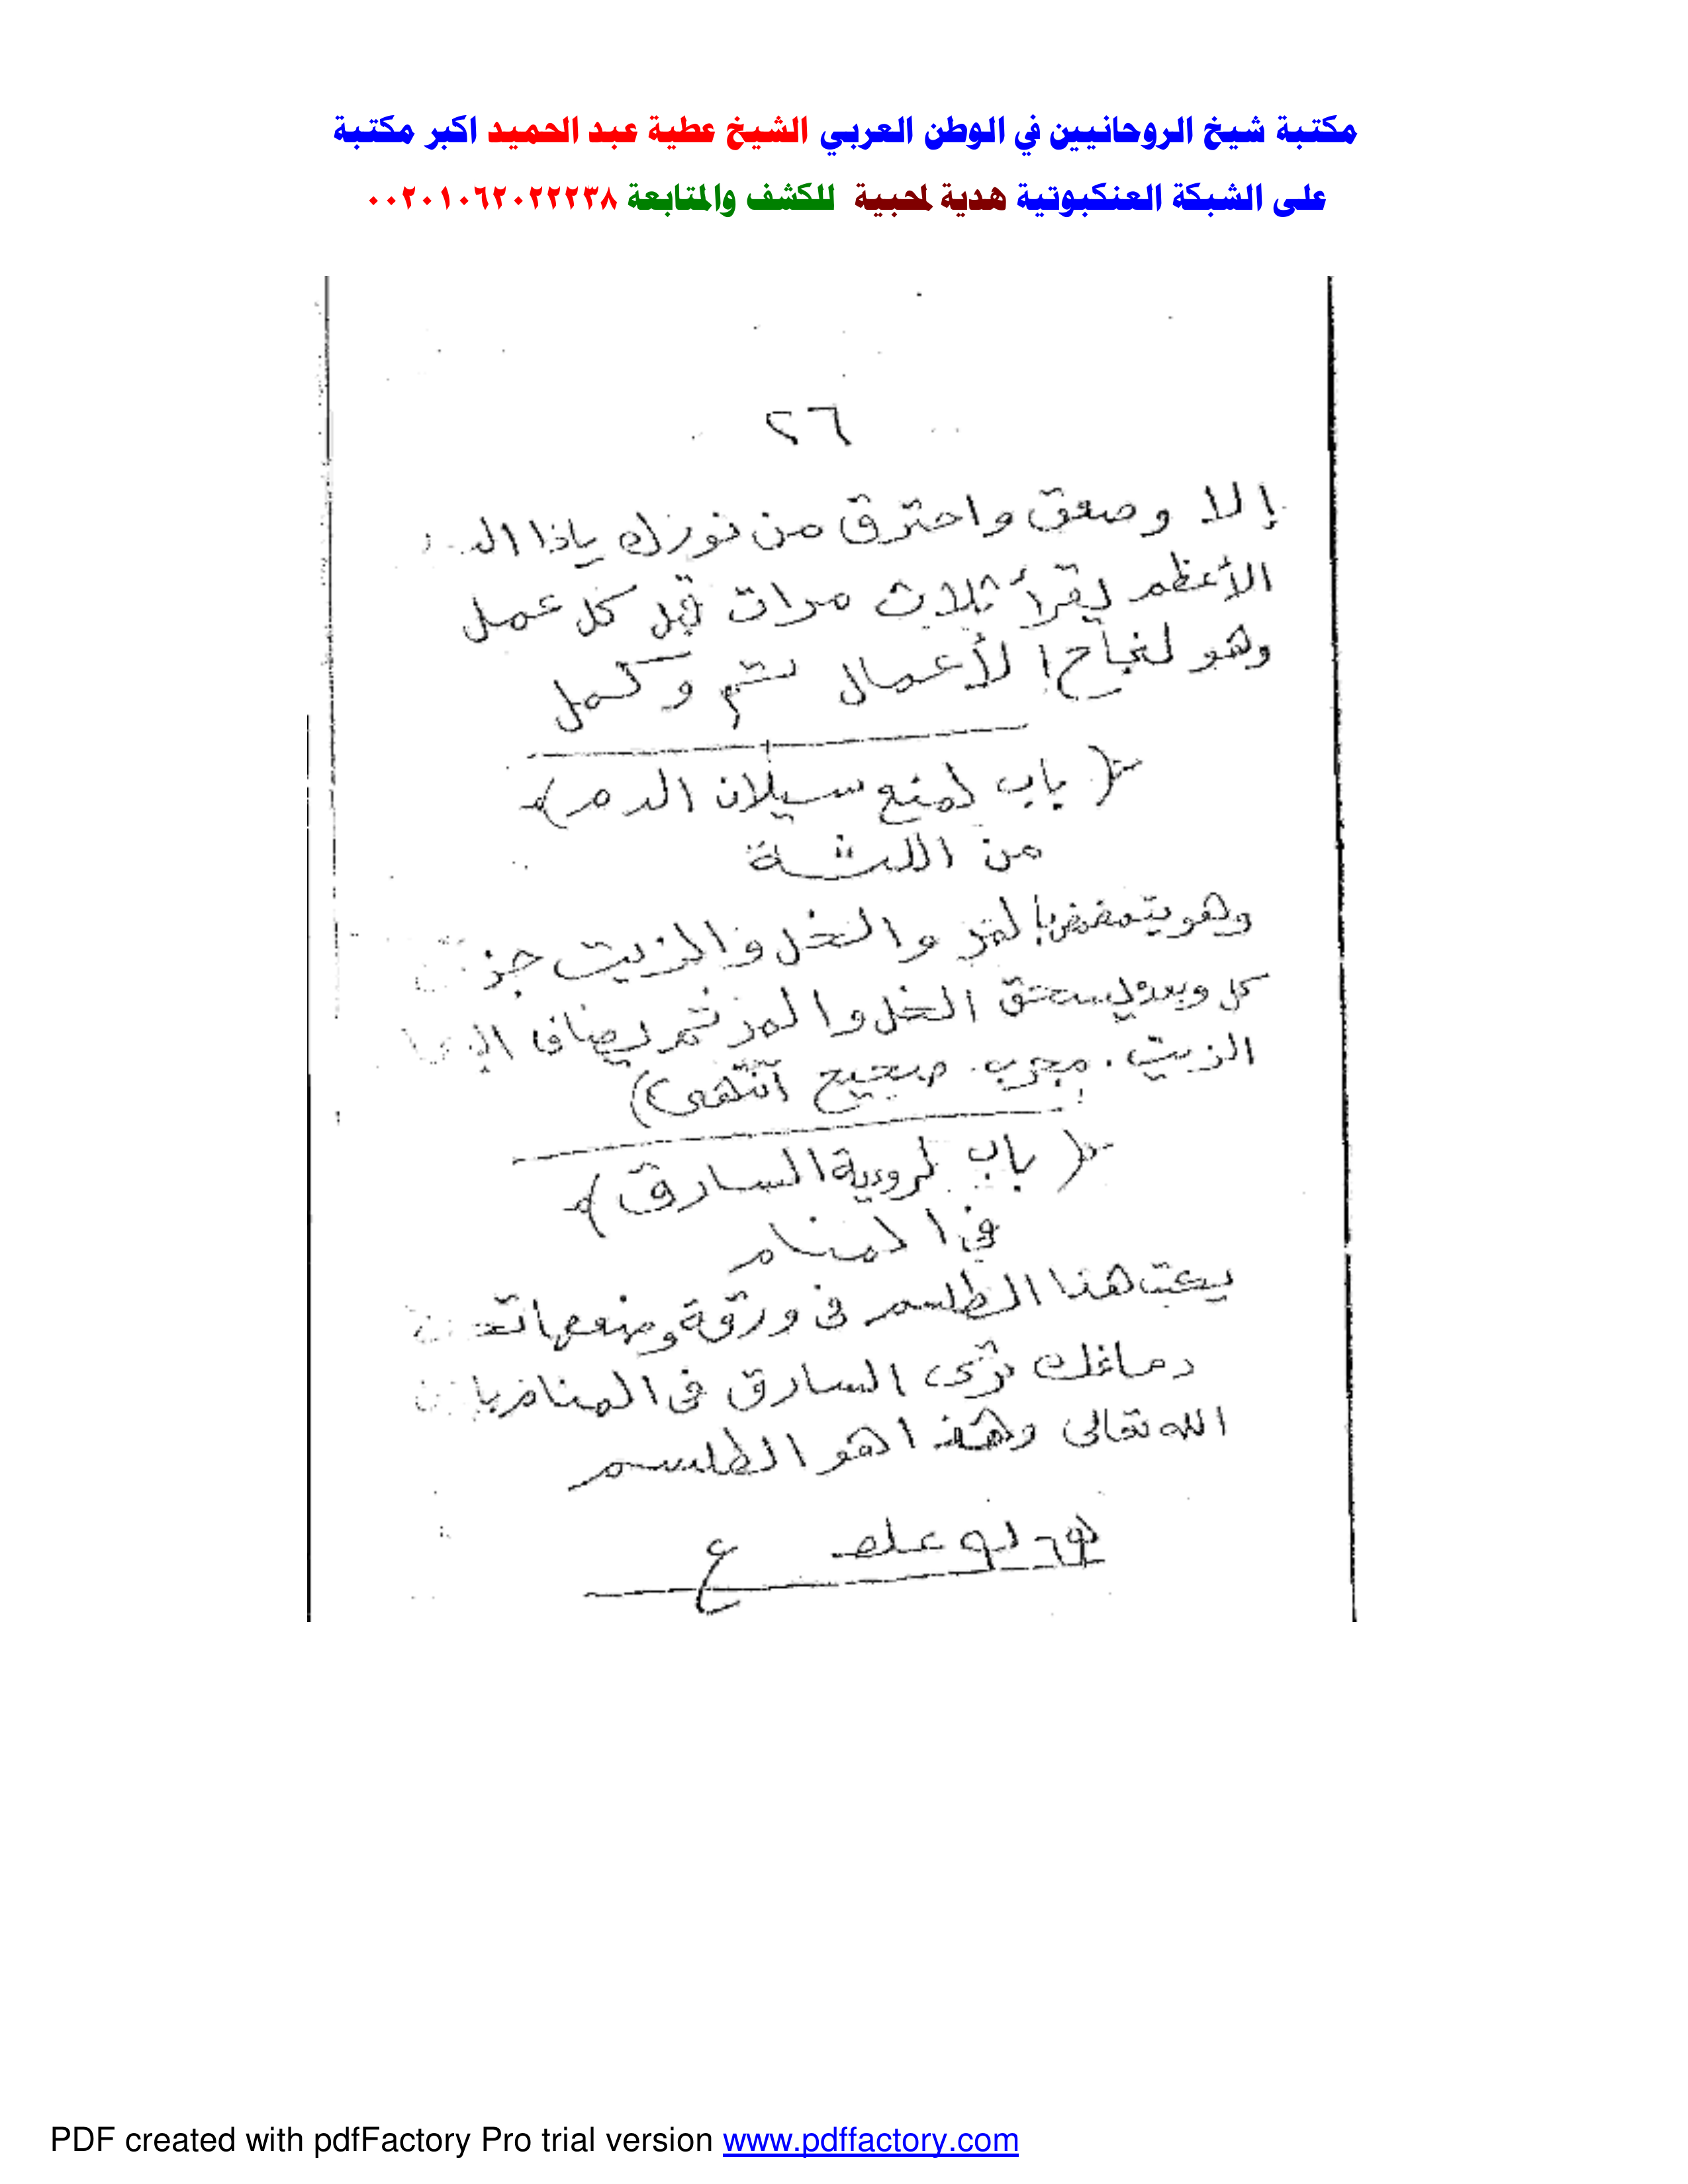 مكتبة شيخ الروحانيين في الوطن العربي الشيخ عطية عبد الحميد اكبر مكتبة
على الشبكة العنكبوتية هدية لمحبية للكشف والمتابعة ٠٠٢٠١٠٦٢٠٢٢٢٣٨
٢٦
إلا وصعق واحترق من نورك ياذا
الأعظم يقرأ ثلاث مرات قبل كل عمل
وهو لنجاح الأعمال تتم وكمل
﴿ باب لمنع سيلان الدم ﴾
من اللثة
وهو يتمضمض بالمر والخل والزيت
كل وبعد يسحق الخل والمر ثم يضاف
الزيت . مجرب . صحيح انتهى )
﴿ باب لروية السارق ﴾
في المنام
يكتب هذا الطلسم في ورقة وضعها
دماغك ترى السارق في المنام
الله تعالى وهذا هو الطلسم
PDF created with pdfFactory Pro trial version www.pdffactory.com